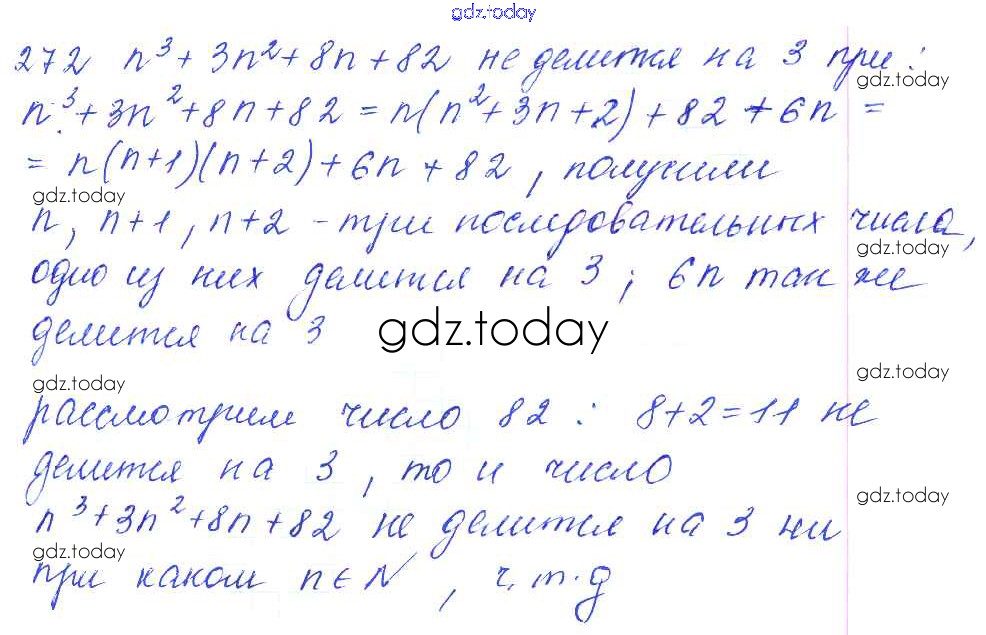 gdz.today
272 n³ + 3n² + 8n + 82 не делится на 3 при:
gdz.today
n³ + 3n² + 8n + 82 = n(n² + 3n + 2) + 82 + 6n =
= n(n+1)(n+2) + 6n + 82, получили
gdz.today
n, n+1, n+2 - три последовательных числа,
gdz.today
одно из них делится на 3; 6n так же
делится на 3
gdz.today
gdz.today
gdz.today
рассмотрим число 82 : 8+2=11 не
делится на 3, то и число
gdz.today
n³ + 3n² + 8n + 82 не делится на 3 ни
gdz.today
при каком n ∈ N, ч.т.д